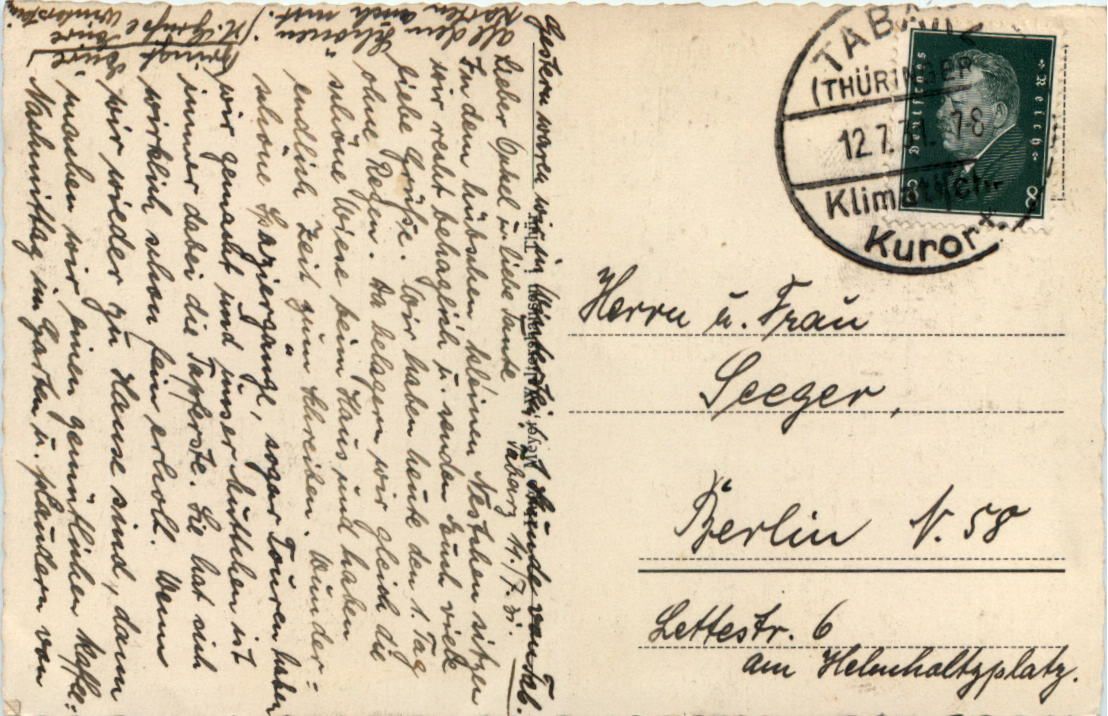 Lieber Onkel u. liebe Tante! Tabarz 11./7.31.
In dem hübschen kleinen Nestchen sitzen
wir recht behaglich u. senden Euch viele
liebe Grüße. Wir haben heute den 1. Tag
ohne Regen. Da belagern wir gleich die
schöne Wiese beim Haus und haben
endlich Zeit zum Schreiben. Wunder-
schöne Spaziergänge, sogar Touren haben
wir gemacht und unser Mutthen ist
immer dabei die Tapferste. Sie hat sich
wirklich schon fein erholt. Wenn
wir wieder zu Hause sind, dann
machen wir einen gemütlichen Kaffee-
Nachmittag im Garten u. plaudern von
all dem Schönen.
Karten auch mit.
Gestern waren wir in Winterstein, 1 Stunde von Tab.
TABARZ
(THÜRINGER
12.7.31. 7-8
Klimatisch.
Kurort
Deutsches Reich
8 8
Herrn u. Frau
Seeger,
Berlin N. 58
Lettestr. 6
am Helmholtzplatz.